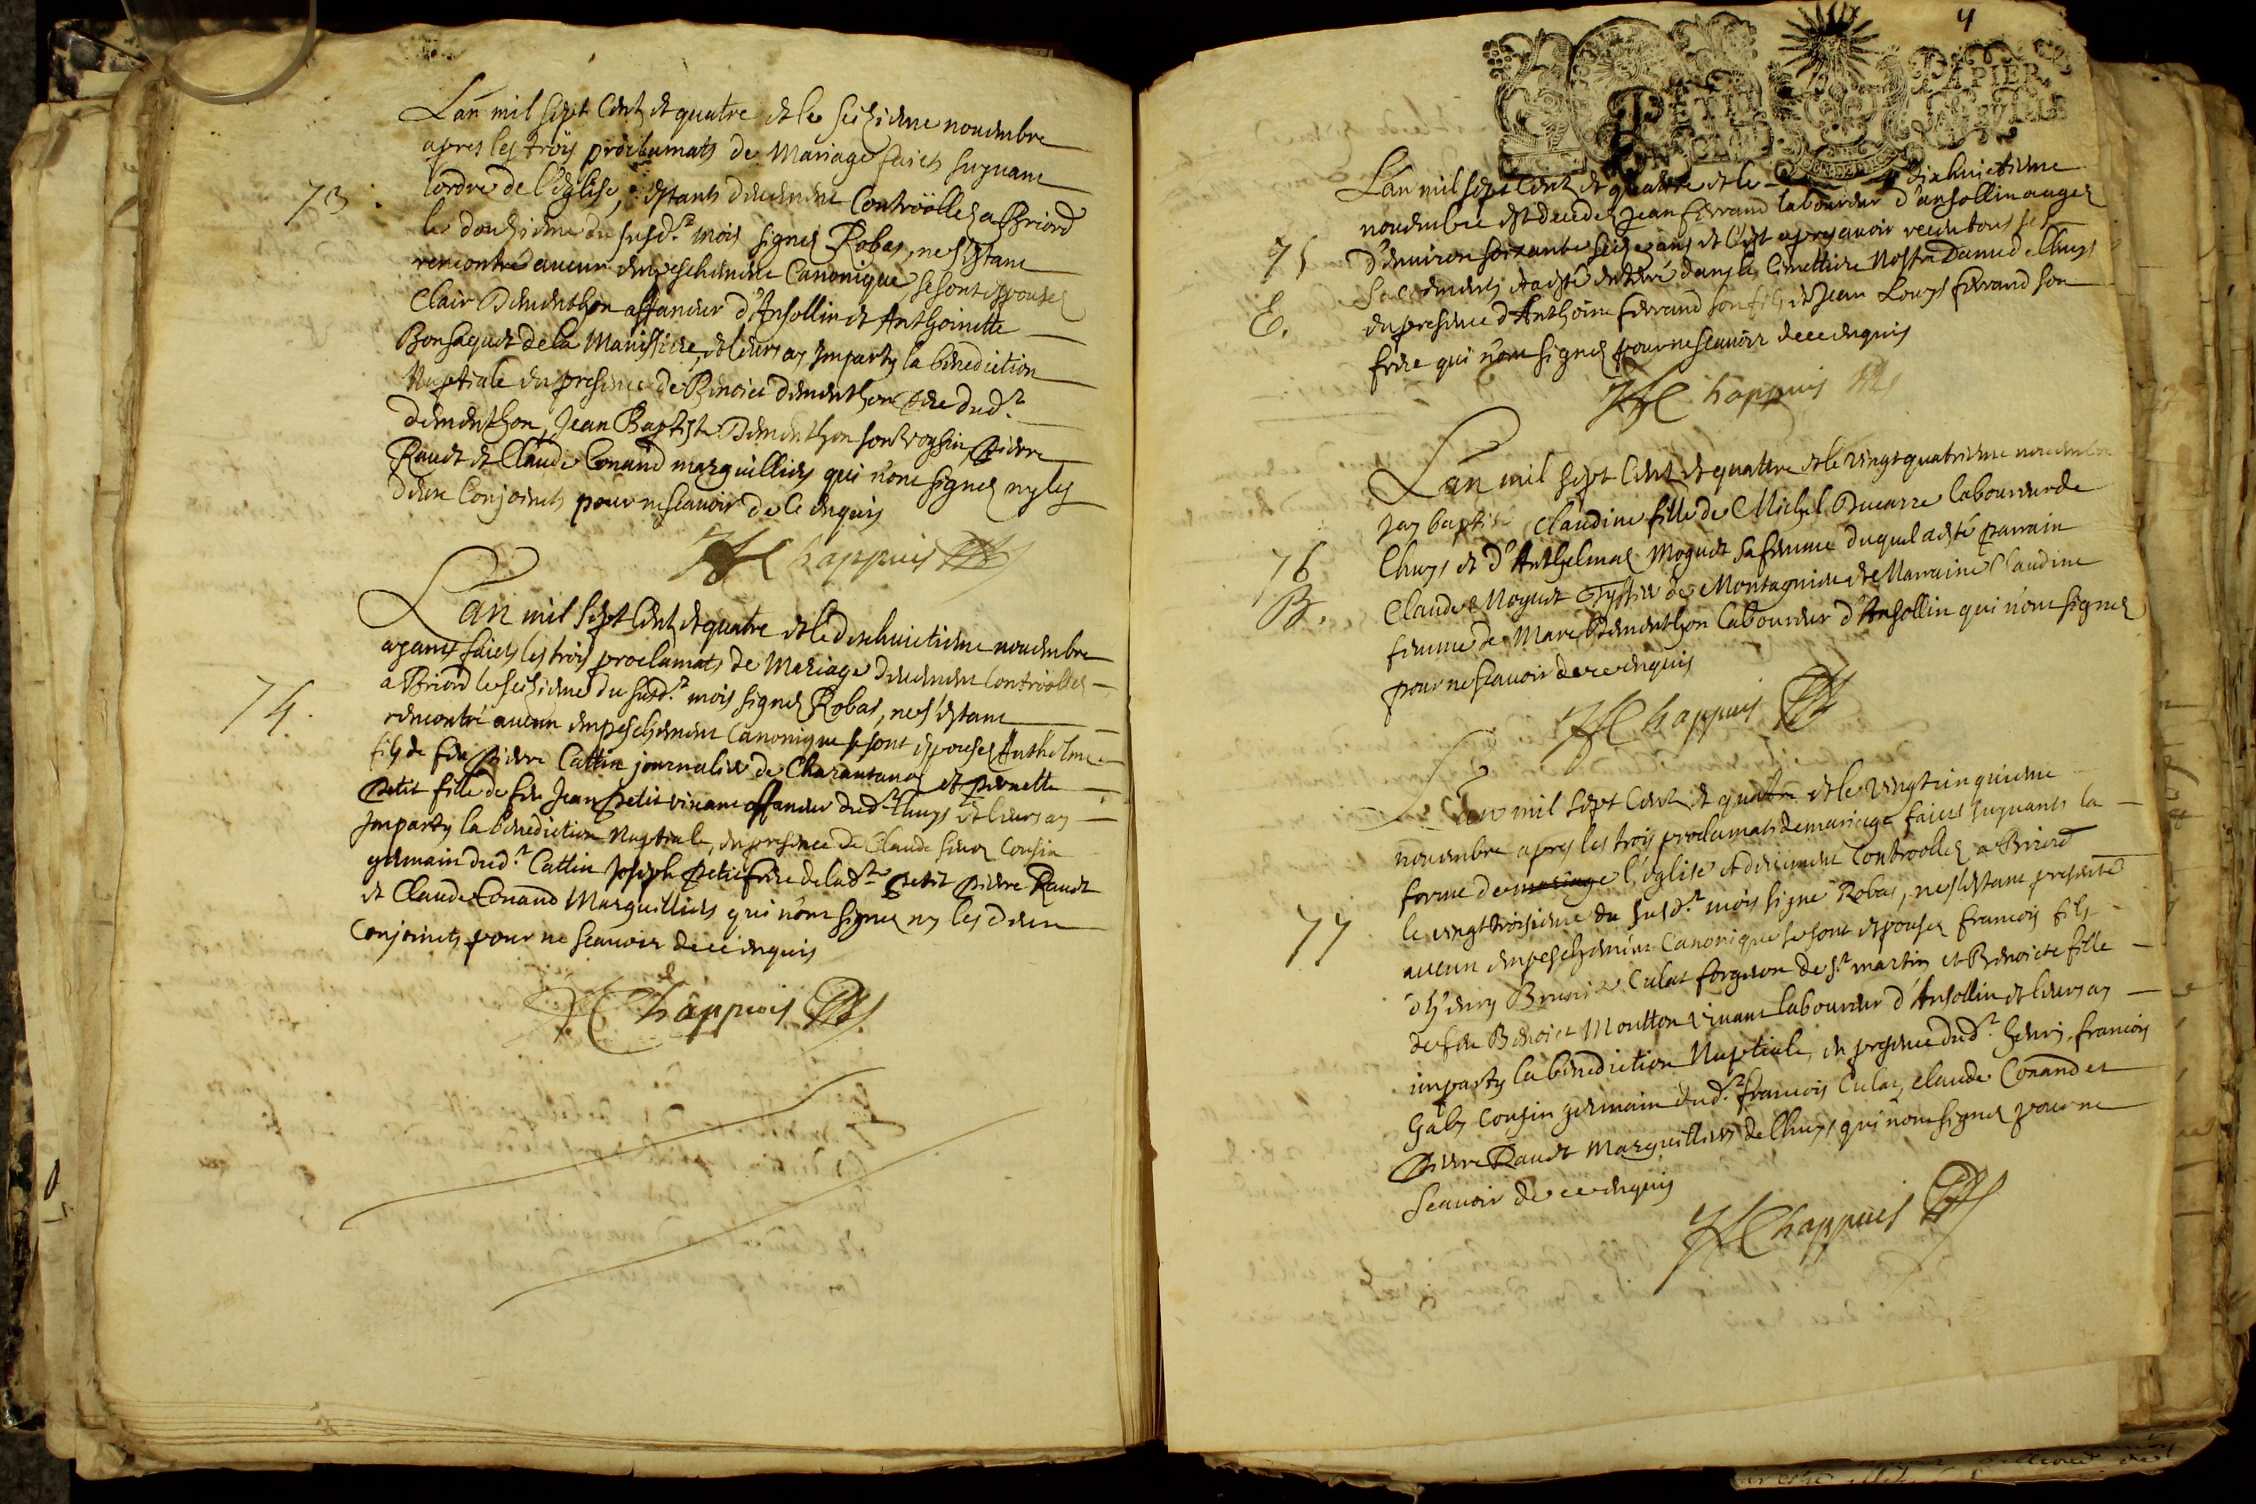 Lan mil sept cent et quatre et le seizieme nouembre
apres les trois proclamats de Mariage faicts suyuant
73. lordre de l'Eglise, estants deuement Controollez a Briord
le douzieme du susd.t mois signez Robas, ne sestant
rencontré aucun empeschement Canonique, se sont espousez
Clair Dementhon affaneur d'Ansollin et Anthoinette
Bonsaquet de la Manissiere, et leurs ay Imparty la benediction
Nuptiale en presence de Benoict dementhon dud.t
dementhon, Jean Baptiste Dementhon son voysin, Pierre
Raudt et Claude Conand marguilliers qui n'ont signez ny les
deux Conjoincts pour ne scauoir de ce enquis
Chappuis
Lan mil sept cent et quatre et le dixhuictieme nouembre
ayants faicts les trois proclamats de Mariage deuement Controollez
74. a Briord le seizieme du susd.t mois signez Robas, ne s'estant
rencontré aucun empeschement Canonique se sont espousez Anthelme
fils de feu Pierre Cattin journalier de et Pernette
Petit fille de feu Jean Petit viuant affaneur dud.t Lhuys et leurs ay
Imparty la benediction Nuptiale, en presence de Claude Cousin
germain dud.t Cattin Joseph Petit frere de lad.te Petit Pierre Raudt
et Claude Conand Marguilliers qui n'ont signez ny les deux
Conjoincts pour ne scauoir de ce enquis
Chappuis
4
PETIT PAPIER
Lan mil sept cent et quatre et le dixhuictieme
nouembre est decedez Jean ferrand laboureur d'ansollin aagez
75 d'enuiron soixante seize ans et c'est apres auoir receu tous ses
Sacrements et a esté enterré dans le Cimettiere Nostre Dame de Lhuys
E. en presence d'Anthoine ferrand son fils et Jean Louys ferrand son
frere qui n'ont signez pour ne scauoir de ce enquis
Chappuis
Lan mil sept cent et quattre et le vingt quatrieme nouembre
Jay baptisé Claudine fille de Michel Ducarre laboureur de
76 Lhuys et d'Anthelmaz Moguet sa femme duquel a esté parrain
B. Claude Moguet Tyssier de Montagnieu et Marraine Claudine
femme de Marc Dementhon laboureur d'Ansollin qui n'ont signez
pour ne scauoir de ce enquis
Chappuis
Lan mil sept cent et quatre et le vingt cinquieme
nouembre apres les trois proclamats de mariage faicts suyuants la
forme de mariage l'eglise et deuement Controollez a Briord
77 le vingt troisieme du susd.t mois signe Robas, ne s'estant presenté
aucun empeschement Canonique se sont espousez francois fils
d'henry Culat forgeron de s.t martin et Benoiste fille
de feu Benoict Moutton viuant laboureur d'Ansollin et leurs ay
imparty la benediction Nuptiale, en presence dud.t henry, francois
Gaby Cousin germain dud.t francois Culat, Claude Conand et
Pierre Raudt Marguilliers de Lhuys qui n'ont signez pour ne
scauoir de ce enquis
Chappuis